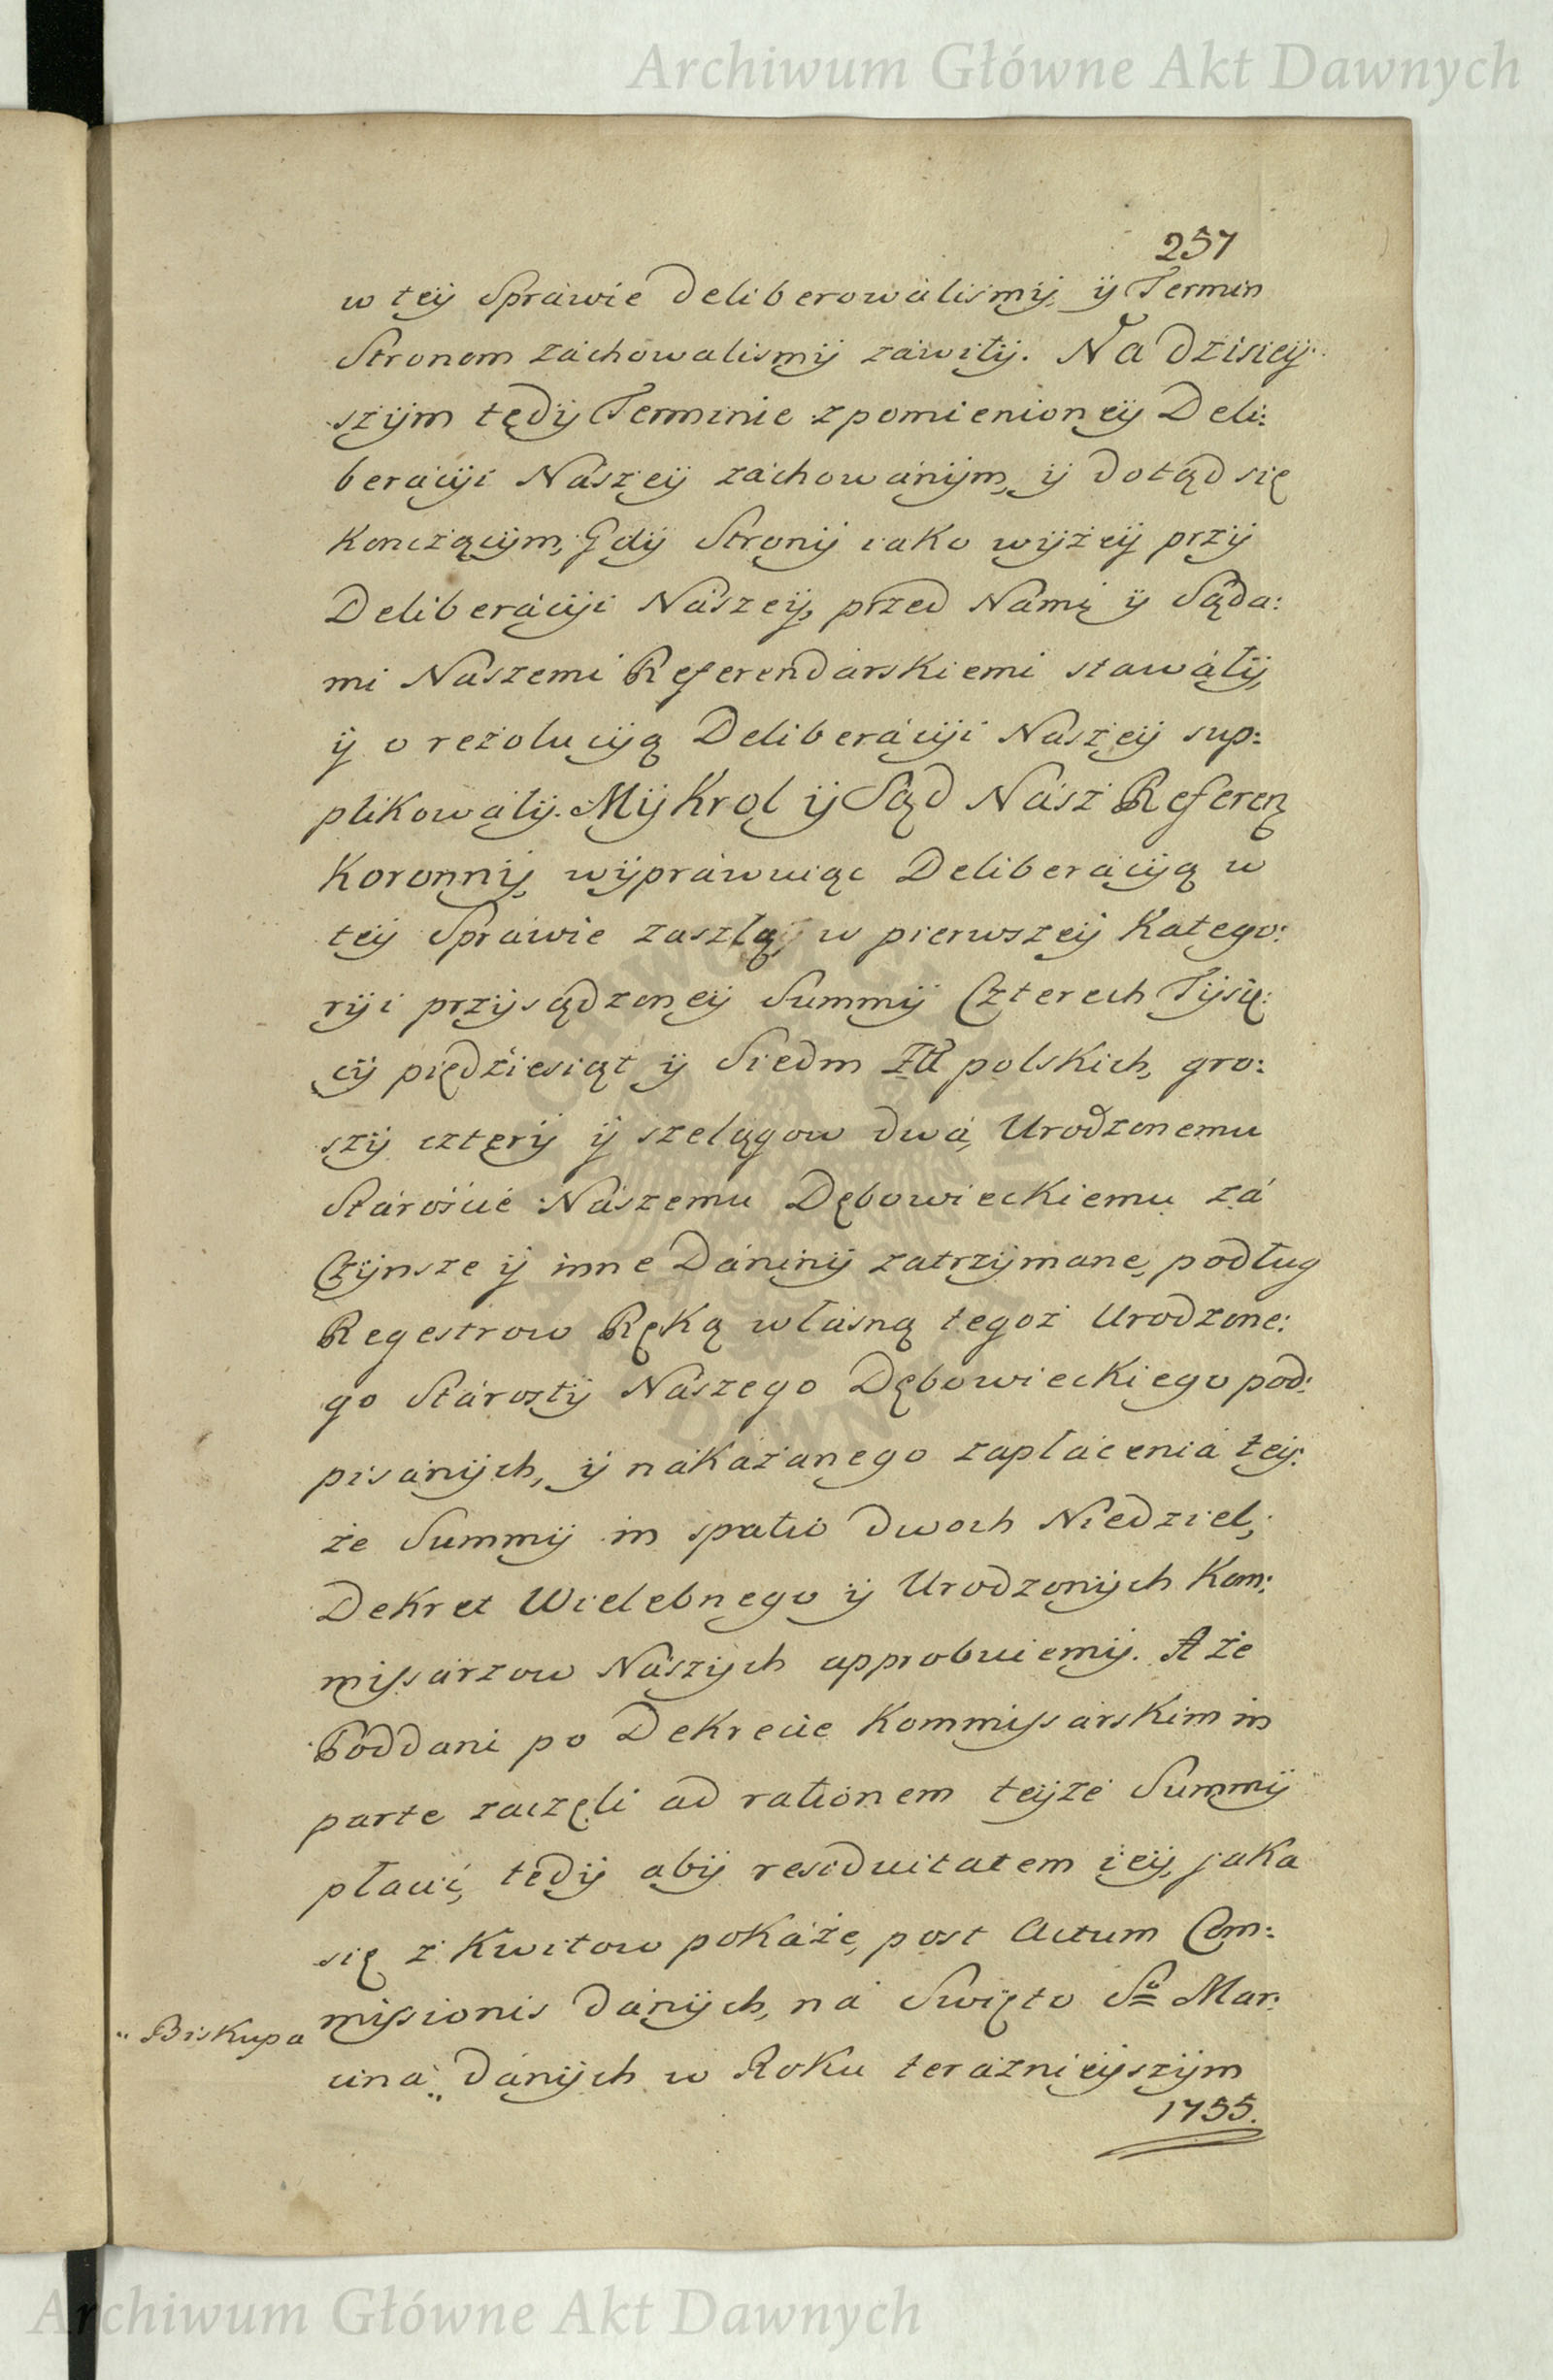 Archiwum Główne Akt Dawnych
257
w teÿ Spráwie deliberowálismÿ, ÿ Termin
Stronom záchowalismÿ záwitÿ. Na dzisieÿ:
szÿm tędÿ Terminie z pomienioneÿ Deli:
beráciÿi Nászeÿ záchowánÿm, ÿ dotąd się
kończącÿm, Gdÿ Stronÿ iako wÿżeÿ przÿ
Deliberáciÿi Nászeÿ, przed Námi ÿ Sąda:
mi Naszemi Referendárskiemi stawáłÿ,
ÿ o rezolucÿą Deliberáciÿi Naszeÿ sup:
plikowáłÿ. Mÿ Krol ÿ Sąd Nász Referen
Koronnÿ wÿpráwuiąc Deliberácÿą w
teÿ Spráwie zaszłą, w pierwszeÿ Katego:
rÿi przÿsądzoneÿ Summÿ Czterech Tÿsię:
cÿ pięćdziesiąt ÿ Siedm Zł polskich, gro:
szÿ czterÿ ÿ szelągow dwá, Urodzonemu
Stárościé Nászemu Dębowieckiemu zá
Czÿnsze ÿ inne Dáninÿ zatrzÿmane, podług
Regestrow Ręką włásną tegoż Urodzone:
go Stárostÿ Nászego Dębowieckiego pod:
pisánÿch, ÿ nákazanego zapłácenia teÿ:
że Summÿ in spatio dwoch Niedziel,
Dekret Wielebnego ÿ Urodzonÿch Kom:
missárzow Nászÿch approbuiemÿ. A że
Poddani po Dekrecie Kommissárskim in
parte zaczęli ad rationem teÿże Summÿ
płacić, tedÿ abÿ residuitatem ieÿ, jaka
się z Kwitow pokáże, post Actum Com:
missionis dánÿch, ná Swięto S° Mar:
„ Biskupa
ciná„ dánÿch w Roku teráznieÿszÿm
1755.
Archiwum Główne Akt Dawnych